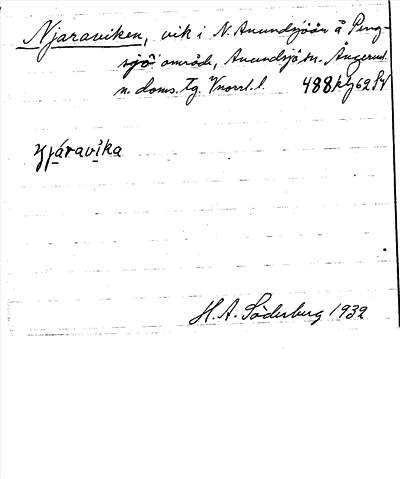 Njaraviken, vik i N. Anundsjöån å Peng-
sjö område, Anundsjö sn. Ångerml.
n. doms. tg. Vnorrl. l. 488
Njáravika
H. A. Söderberg 1932